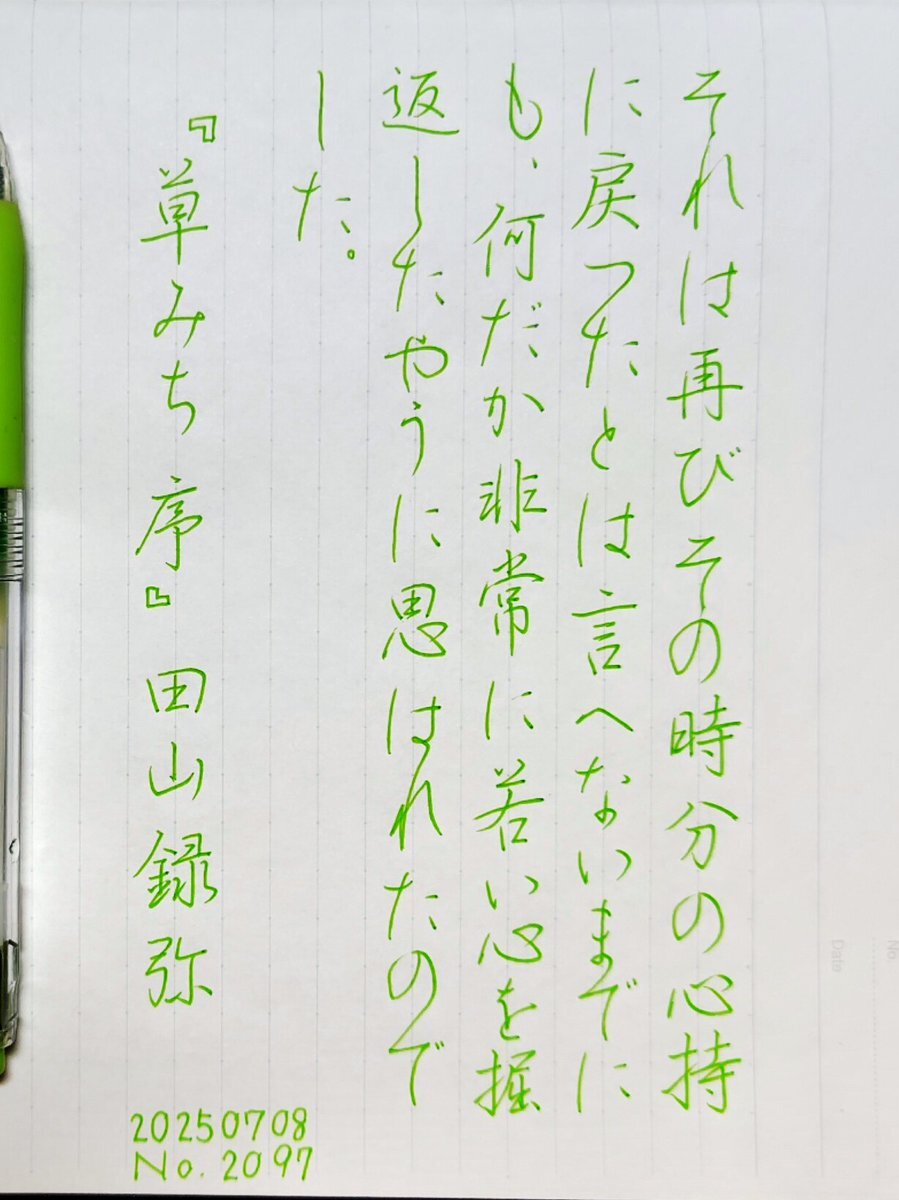 それは再びその時分の心持
に戻つたとは言へないまでに
も、何だか非常に若い心を掘
返したやうに思はれたので
した。
『草みち序』田山録弥
20250708
No.2097
No.
Date